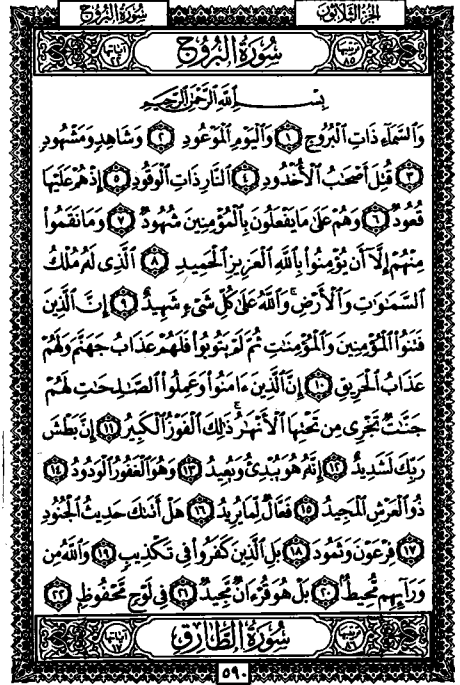 سُورَةُ البُرُوجِ الجُزْءُ الثَّلَاثُونَ
ترتيبها ٨٥ سُورَةُ البُرُوجِ آياتها ٢٢
بِسْمِ اللَّهِ الرَّحْمَٰنِ الرَّحِيمِ
وَالسَّمَآءِ ذَاتِ الْبُرُوجِ ١ وَالْيَوْمِ الْمَوْعُودِ ٢ وَشَاهِدٍ وَمَشْهُودٍ
٣ قُتِلَ أَصْحَٰبُ الْأُخْدُودِ ٤ النَّارِ ذَاتِ الْوَقُودِ ٥ إِذْ هُمْ عَلَيْهَا
قُعُودٌ ٦ وَهُمْ عَلَىٰ مَا يَفْعَلُونَ بِالْمُؤْمِنِينَ شُهُودٌ ٧ وَمَا نَقَمُوا۟
مِنْهُمْ إِلَّآ أَن يُؤْمِنُوا۟ بِاللَّهِ الْعَزِيزِ الْحَمِيدِ ٨ الَّذِى لَهُۥ مُلْكُ
السَّمَٰوَٰتِ وَالْأَرْضِ ۚ وَاللَّهُ عَلَىٰ كُلِّ شَىْءٍ شَهِيدٌ ٩ إِنَّ الَّذِينَ
فَتَنُوا۟ الْمُؤْمِنِينَ وَالْمُؤْمِنَٰتِ ثُمَّ لَمْ يَتُوبُوا۟ فَلَهُمْ عَذَابُ جَهَنَّمَ وَلَهُمْ
عَذَابُ الْحَرِيقِ ١٠ إِنَّ الَّذِينَ ءَامَنُوا۟ وَعَمِلُوا۟ الصَّٰلِحَٰتِ لَهُمْ
جَنَّٰتٌ تَجْرِى مِن تَحْتِهَا الْأَنْهَٰرُ ۚ ذَٰلِكَ الْفَوْزُ الْكَبِيرُ ١١ إِنَّ بَطْشَ
رَبِّكَ لَشَدِيدٌ ١٢ إِنَّهُۥ هُوَ يُبْدِئُ وَيُعِيدُ ١٣ وَهُوَ الْغَفُورُ الْوَدُودُ ١٤
ذُو الْعَرْشِ الْمَجِيدُ ١٥ فَعَّالٌ لِّمَا يُرِيدُ ١٦ هَلْ أَتَىٰكَ حَدِيثُ الْجُنُودِ
١٧ فِرْعَوْنَ وَثَمُودَ ١٨ بَلِ الَّذِينَ كَفَرُوا۟ فِى تَكْذِيبٍ ١٩ وَاللَّهُ مِن
وَرَآئِهِم مُّحِيطٌ ٢٠ بَلْ هُوَ قُرْءَانٌ مَّجِيدٌ ٢١ فِى لَوْحٍ مَّحْفُوظٍ ٢٢
ترتيبها ٨٦ سُورَةُ الطَّارِقِ آياتها ١٧
٥٩٠